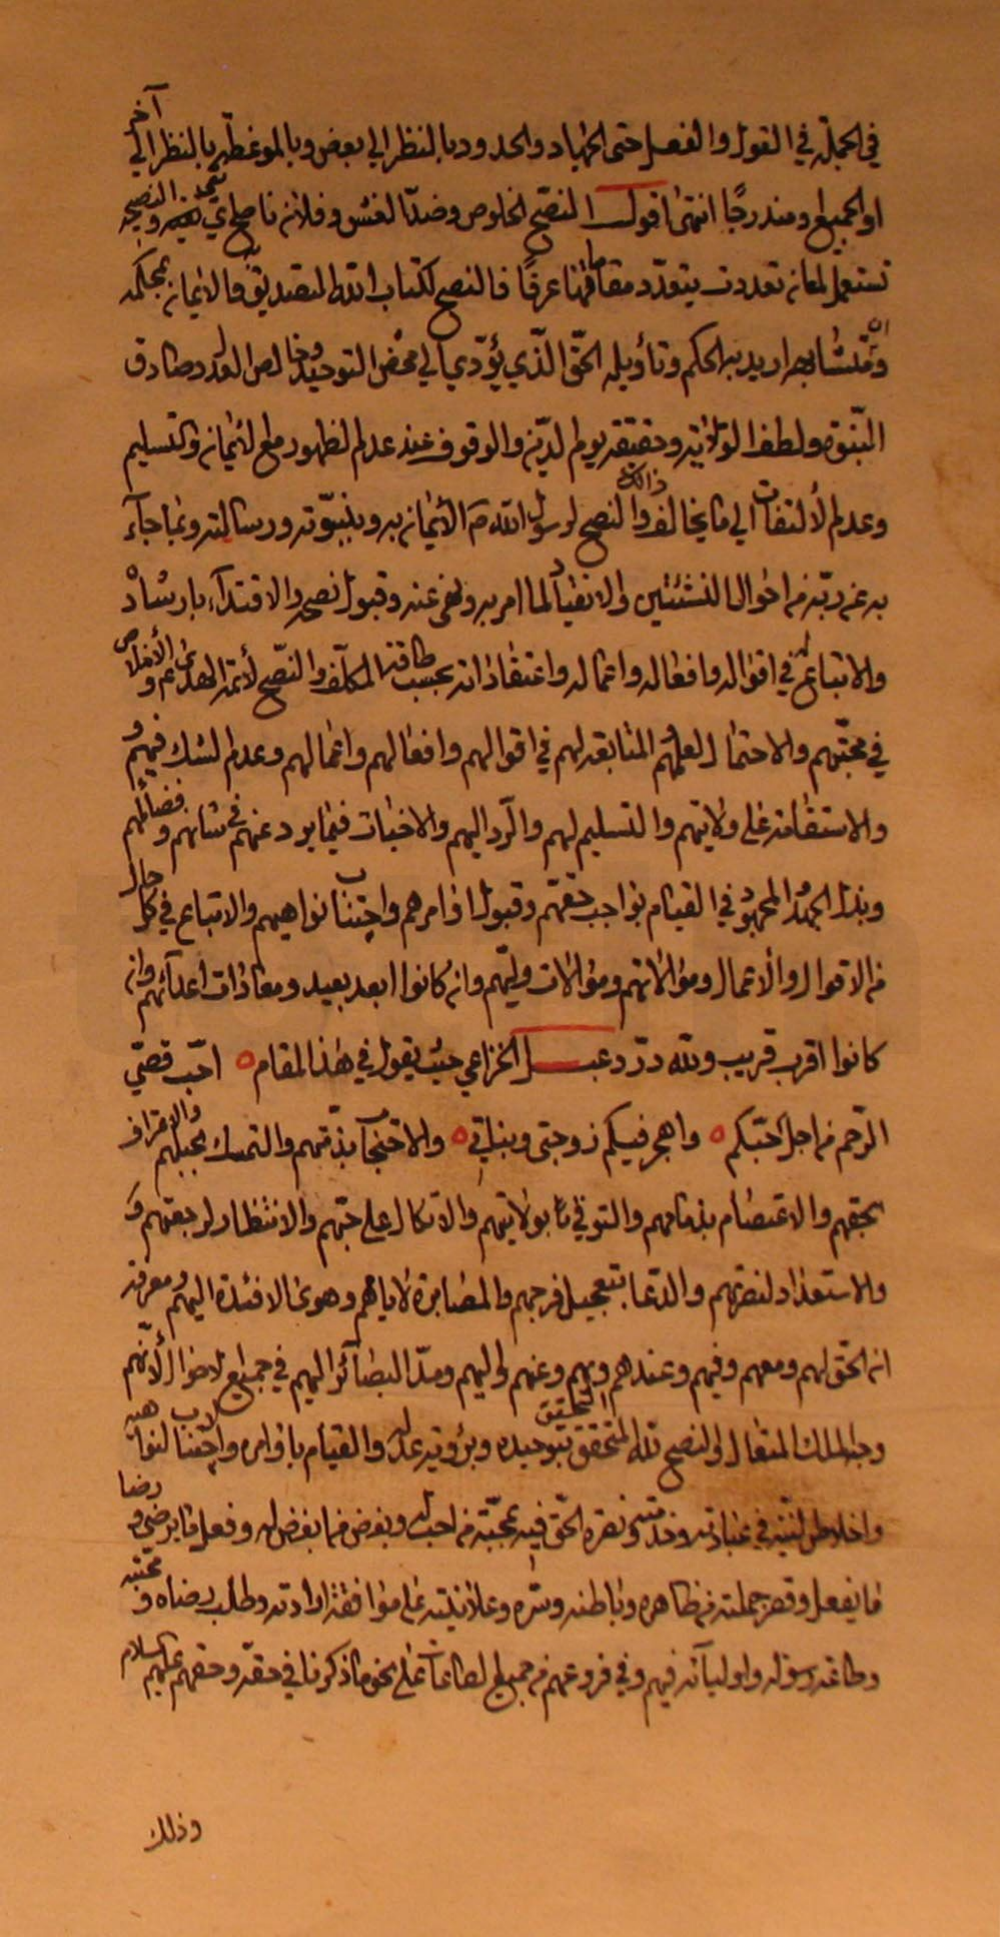 في الجملة في القول والفعل حتى الجهاد والحدود بالنظر الي بعض وبالموعظة بالنظر الي آخر
او الجميع ومندرجًا انتهى اقول النصح الخلوص وضدّ الغش وفلان ناصح اي نقي والنصيحة
تستعمل لمعان تعددت بتعدّد مقاماتها عرفًا فالنصح لكتاب الله التصديق والايمان بمحكمه
ومتشابهه اريد به الحكم وتأويله الحقّ الّذي يؤدّي الي محض التوحيد وخالص العدل وصادق
النّبوة ولطف الولاية وحقيقة يوم الدّين والوقوف عند عدم الظهور مع الايمان والتسليم
وعدم الألتفات الي ما يخالف ذالك والنصح لرسول الله ص الأيمان به وبنبوّته ورسالته وبما جآء
به عن ربّه من احوال النشئتين والانقياد لما امر به ونهى عنه وقبول نصحه والاقتدآء بارشاده
والاتباع له في اقواله وافعاله واعماله واعتقاداته بحسب طاقة المكلّف والنصّح لأئمة الهدى ع والأخلاص
في محبّتهم والاحتمال لعلمهم والمتابعة لهم في اقوالهم وافعالهم واعمالهم وعدم الشك فيهم و
والاستقامة على ولايتهم والتسليم لهم والرّد اليهم والاخبات فيما يرد عنهم في شانهم وفضائلهم
وبذل الجهد المجهود في القيام بواجب حقهّم وقبول اوامرهم واجتناب نواهيهم والاتباع في كل حال
من الاقوال والأعمال وموالاتهم وموالات وليّهم وان كانوا ابعد بعيد ومعادات اعدآئهم وان
كانوا اقرب قريب ولله درّ دعبل الخزاعي حيث يقول في هذا المقام احبّ قصيّ
الرّحم من اجل حبّكم واهجر فيكم زوجتي وبناتي والاحتجاب بذمّتهم والتمسك بحبلهم والاعتراف
بحقهم والاعتصام بذمامهم والتوقي بولايتهم والاتكال على حبّهم والانتظار لرجعتهم و
والاستعداد لنصرتهم والدّعا بتعجيل فرجهم والمصابرة لايامهم وهوى الافئدة اليهم ومعرفة
ان الحقّ لهم ومعهم وفيهم وعندهم وبهم وعنهم واليهم ومدّ البصآئر اليهم في جميع الاحوال لأنّهم
وجه الملك المتعال والنصح لله التحقيق المتحقق بتوحيده وبرؤية عدله والقيام باوامره واجتناب نواهيه
واخلاص النيّة في عبادته وخدمته ونصرة الحقّ فيه بمحبّة من احب له وبغض من ابغض له وفعل ما يرضي ورضا
ما يفعل وقصر جملته من ظاهره وباطنه وسّره وعلانيته على موافقة ارادته وطلب رضاه ومحبته
وطاعة رسوله واوليآئه فيهم وفي فروعهم من جميع الطاعات على نحو ما ذكرنا في حقه وحقهم عليهم السلام
وذلك